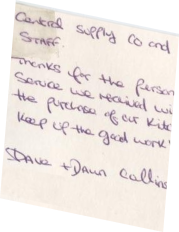 General Supply Co and
Staff.
Thanks for the person
Service we received wi
the purchase of our Kitc
Keep up the good work!
Dave + Dawn Collins